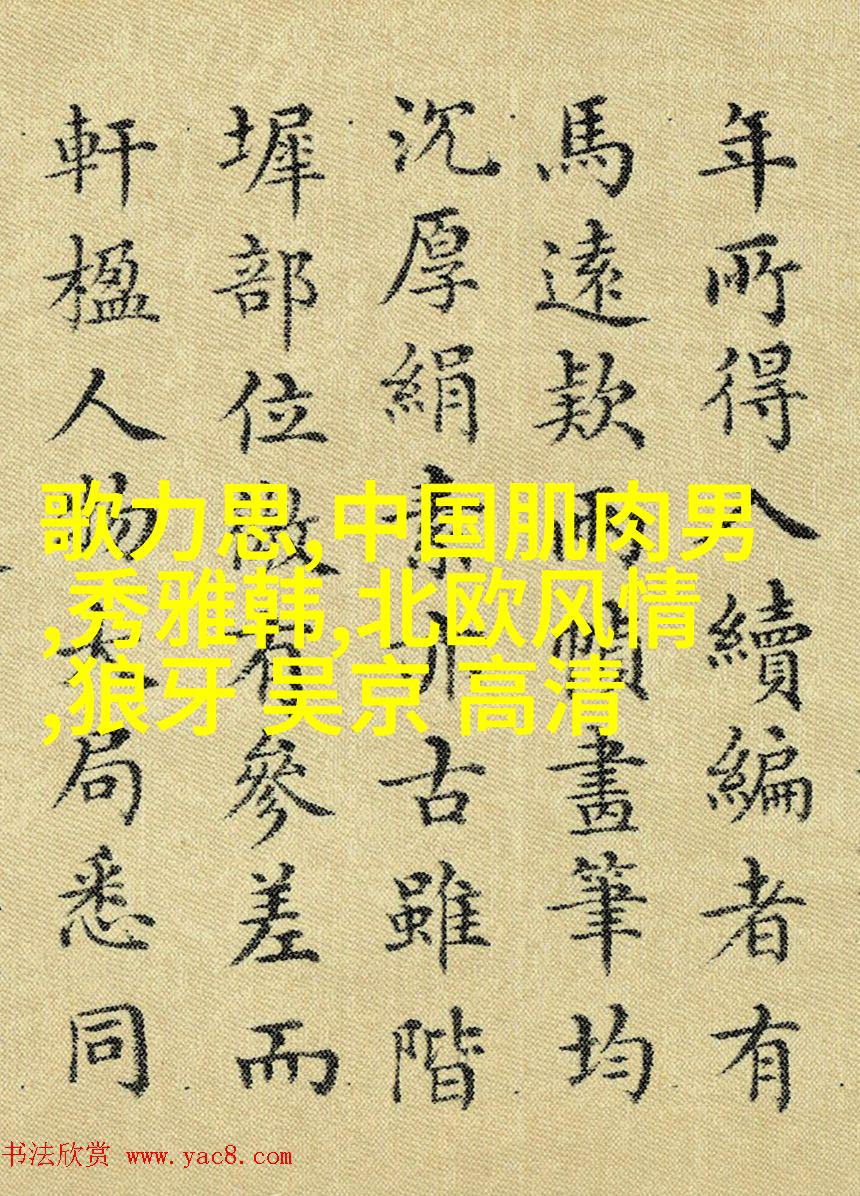 年所得入續編者有
馬遠欵兩幀畫筆均
沉厚絹素非古雖階
墀部位微有參差而
軒楹人物大局悉同
歌力思,中国肌肉男
,秀雅韩,北欧风情
,狼牙 吴京 高清
书法欣赏 www.yac8.com